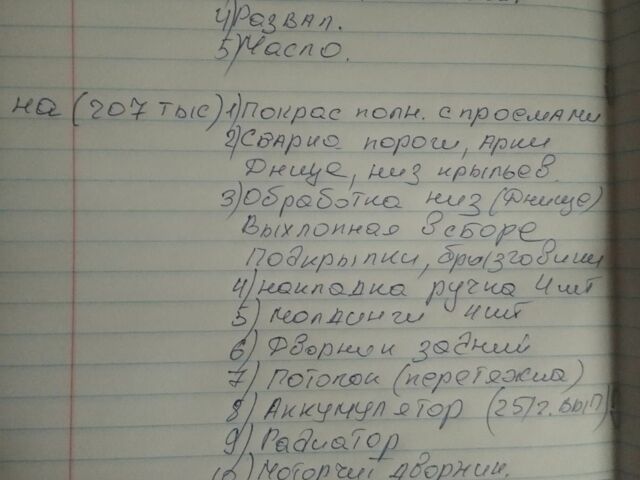 4) Развал.
5) Масло.
на (207 тыс) 1) Покрас полн. с проемами
2) Сварка пороги, арки
Днище, низ крыльев.
3) Обработка низ (Днище)
Выхлопная в сборе
Подкрылки, брызговики
4) накладка ручка 4 шт
5) молдинги 4шт
6) Дворник задний
7) Потолок (перетяжка)
8) Аккумулятор (25г. вып)
9) Радиатор
10) Моторчик дворник.